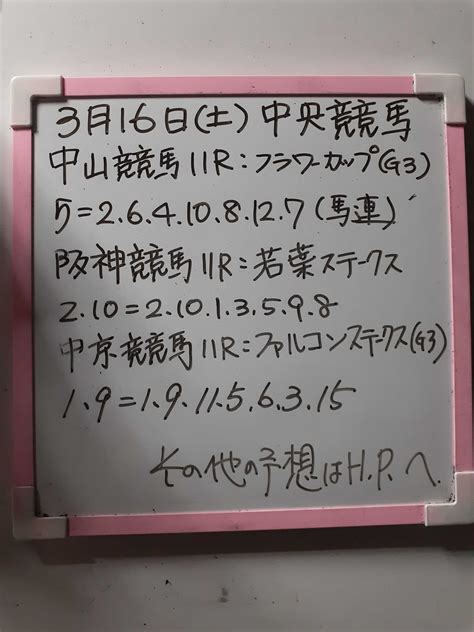 3月16日(土)中央競馬
中山競馬11R:フラワーカップ(G3)
5=2.6.4.10.8.12.7(馬連)
阪神競馬11R:若葉ステークス
2.10=2.10.1.3.5.9.8
中京競馬11R:ファルコンステークス(G3)
1.9=1.9.11.5.6.3.15
その他の予想はH.P.へ.